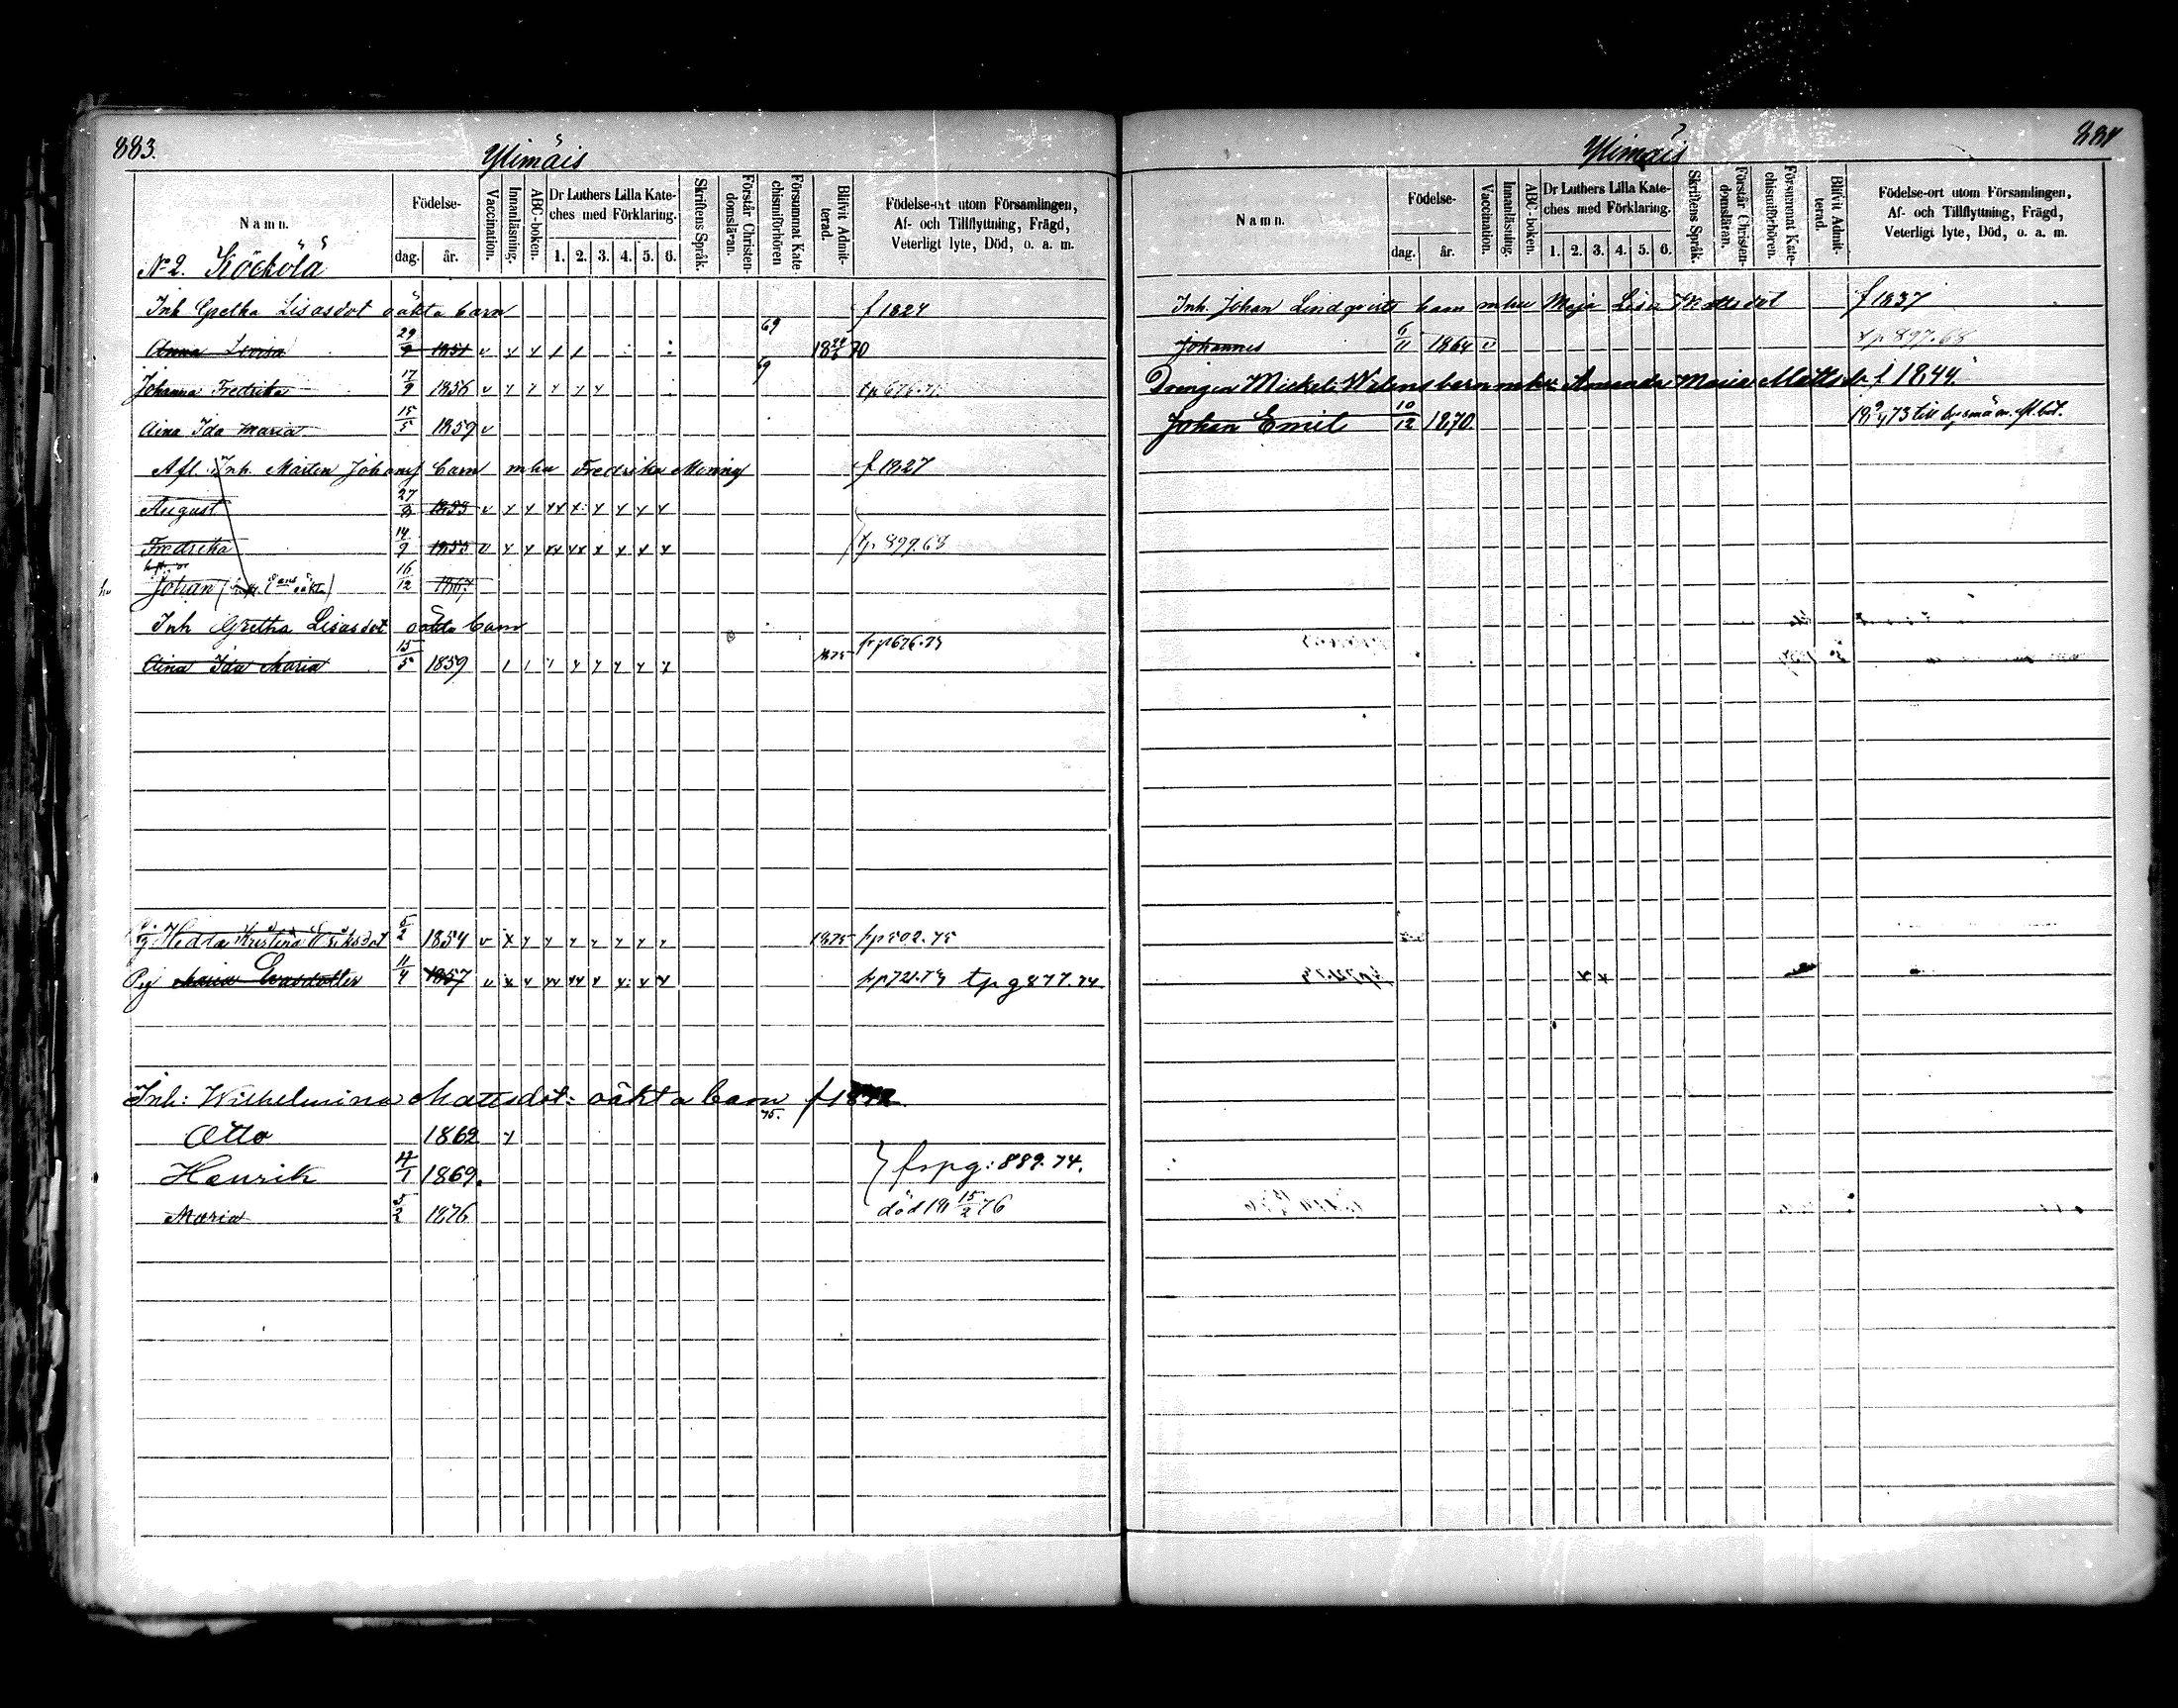 883.
Ylimäis
Namn.
Födelse-
dag.
år.
Vaccination.
Innanläsning.
ABC-boken.
Dr Luthers Lilla Kate-
ches med Förklaring.
1. 2. 3. 4. 5. 6.
Skriftens Språk.
Förstår Christen-
domsläran.
Försummat Kate-
chismiförhören
Blifvit Admit-
terad.
Födelse-ort utom Församlingen,
Af- och Tillflyttning, Frägd,
Veterligt lyte, Död, o. a. m.
No 2. Köckölä
Inh Gretha Lisasdot oäkta barn f 1824
Anna Lovisa 29/9 1851 v x x 1 1 69 70
Johanna Fredrika 17/9 1856 v 69 tp 676.71
Aina Ida Maria 15/5 1859 v
Afl. Inh. Mårten Johans barn mhu Fredrika f 1827
August 27 1853 v x x xx x x x x x
Fredrika 14/9 1855 v x x xx xx x x x x tp 899.68
Johan oäkta 16/12 1867
Inh Gretha Lisasdot oäkta barn
Aina Ida Maria 15/5 1859 1875 fr p 676.73
Pig Hedda Kristina Eriksdot 5/2 1854 v x 1875 fr p 502.75
Pig Maria Evasdotter 11/4 1857 v x x xx xx x x x x fr p 721.73 tpg 877.74
Inh: Wilhelmina Mattsdot: oäkta barn
75.
Otto 1862 x
Henrik 1869. } fspg: 889.74.
Maria 5/2 1876 död 15/2 76
884
Ylimäis
Namn.
Födelse-
dag.
år.
Vaccination.
Innanläsning.
ABC-boken.
Dr Luthers Lilla Kate-
ches med Förklaring.
1. 2. 3. 4. 5. 6.
Skriftens Språk.
Förstår Christen-
domsläran.
Försummat Kate-
chismiförhören.
Blifvit Admit-
terad.
Födelse-ort utom Församlingen,
Af- och Tillflyttning, Frägd,
Veterligt lyte, Död, o. a. m.
Inh. Johan Lindqvists barn mhu Maja Lisa Mattsdot f 1837
Johannes 6/11 1864 v tp 897.68
Drängen Mickel Welens barn mhu Amanda Maria Matts dr f 1844.
Johan Emil 10/12 1870.